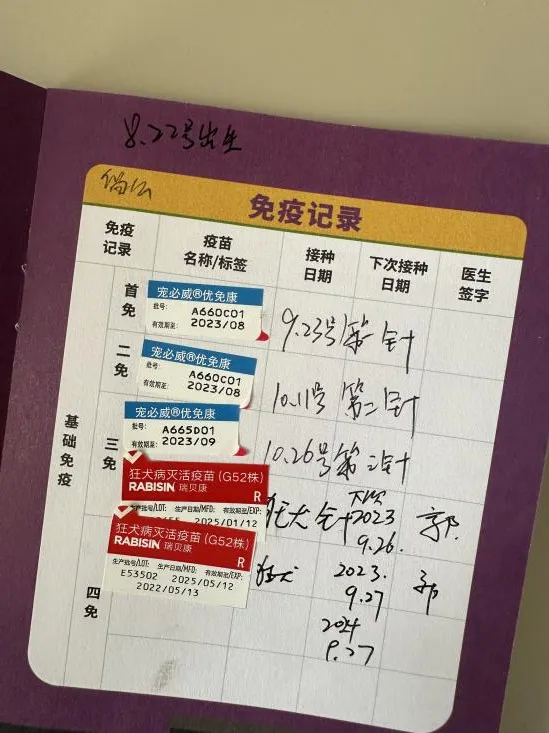 8.22号出生
免疫记录
免疫记录 疫苗名称/标签 接种日期 下次接种日期 医生签字
基础免疫
首免
宠必威®优免康
批号: A660C01
有效期至: 2023/08
9.23号第一针
二免
宠必威®优免康
批号: A660C01
有效期至: 2023/08
10.11号 第二针
三免
宠必威®优免康
批号: A665D01
有效期至: 2023/09
10.26号第三针
狂犬病灭活疫苗(G52株)
RABISIN 瑞贝康
R
生产批号/LOT: 生产日期/MFD: 有效期至/EXP:
2025/01/12
狂犬针 下次 2023 9.26. 郭
狂犬病灭活疫苗(G52株)
RABISIN 瑞贝康
R
生产批号/LOT: 生产日期/MFD: 有效期至/EXP:
E53502 2025/05/12
2022/05/13
狂犬 2023. 9.27 郭
四免
2024
9.27